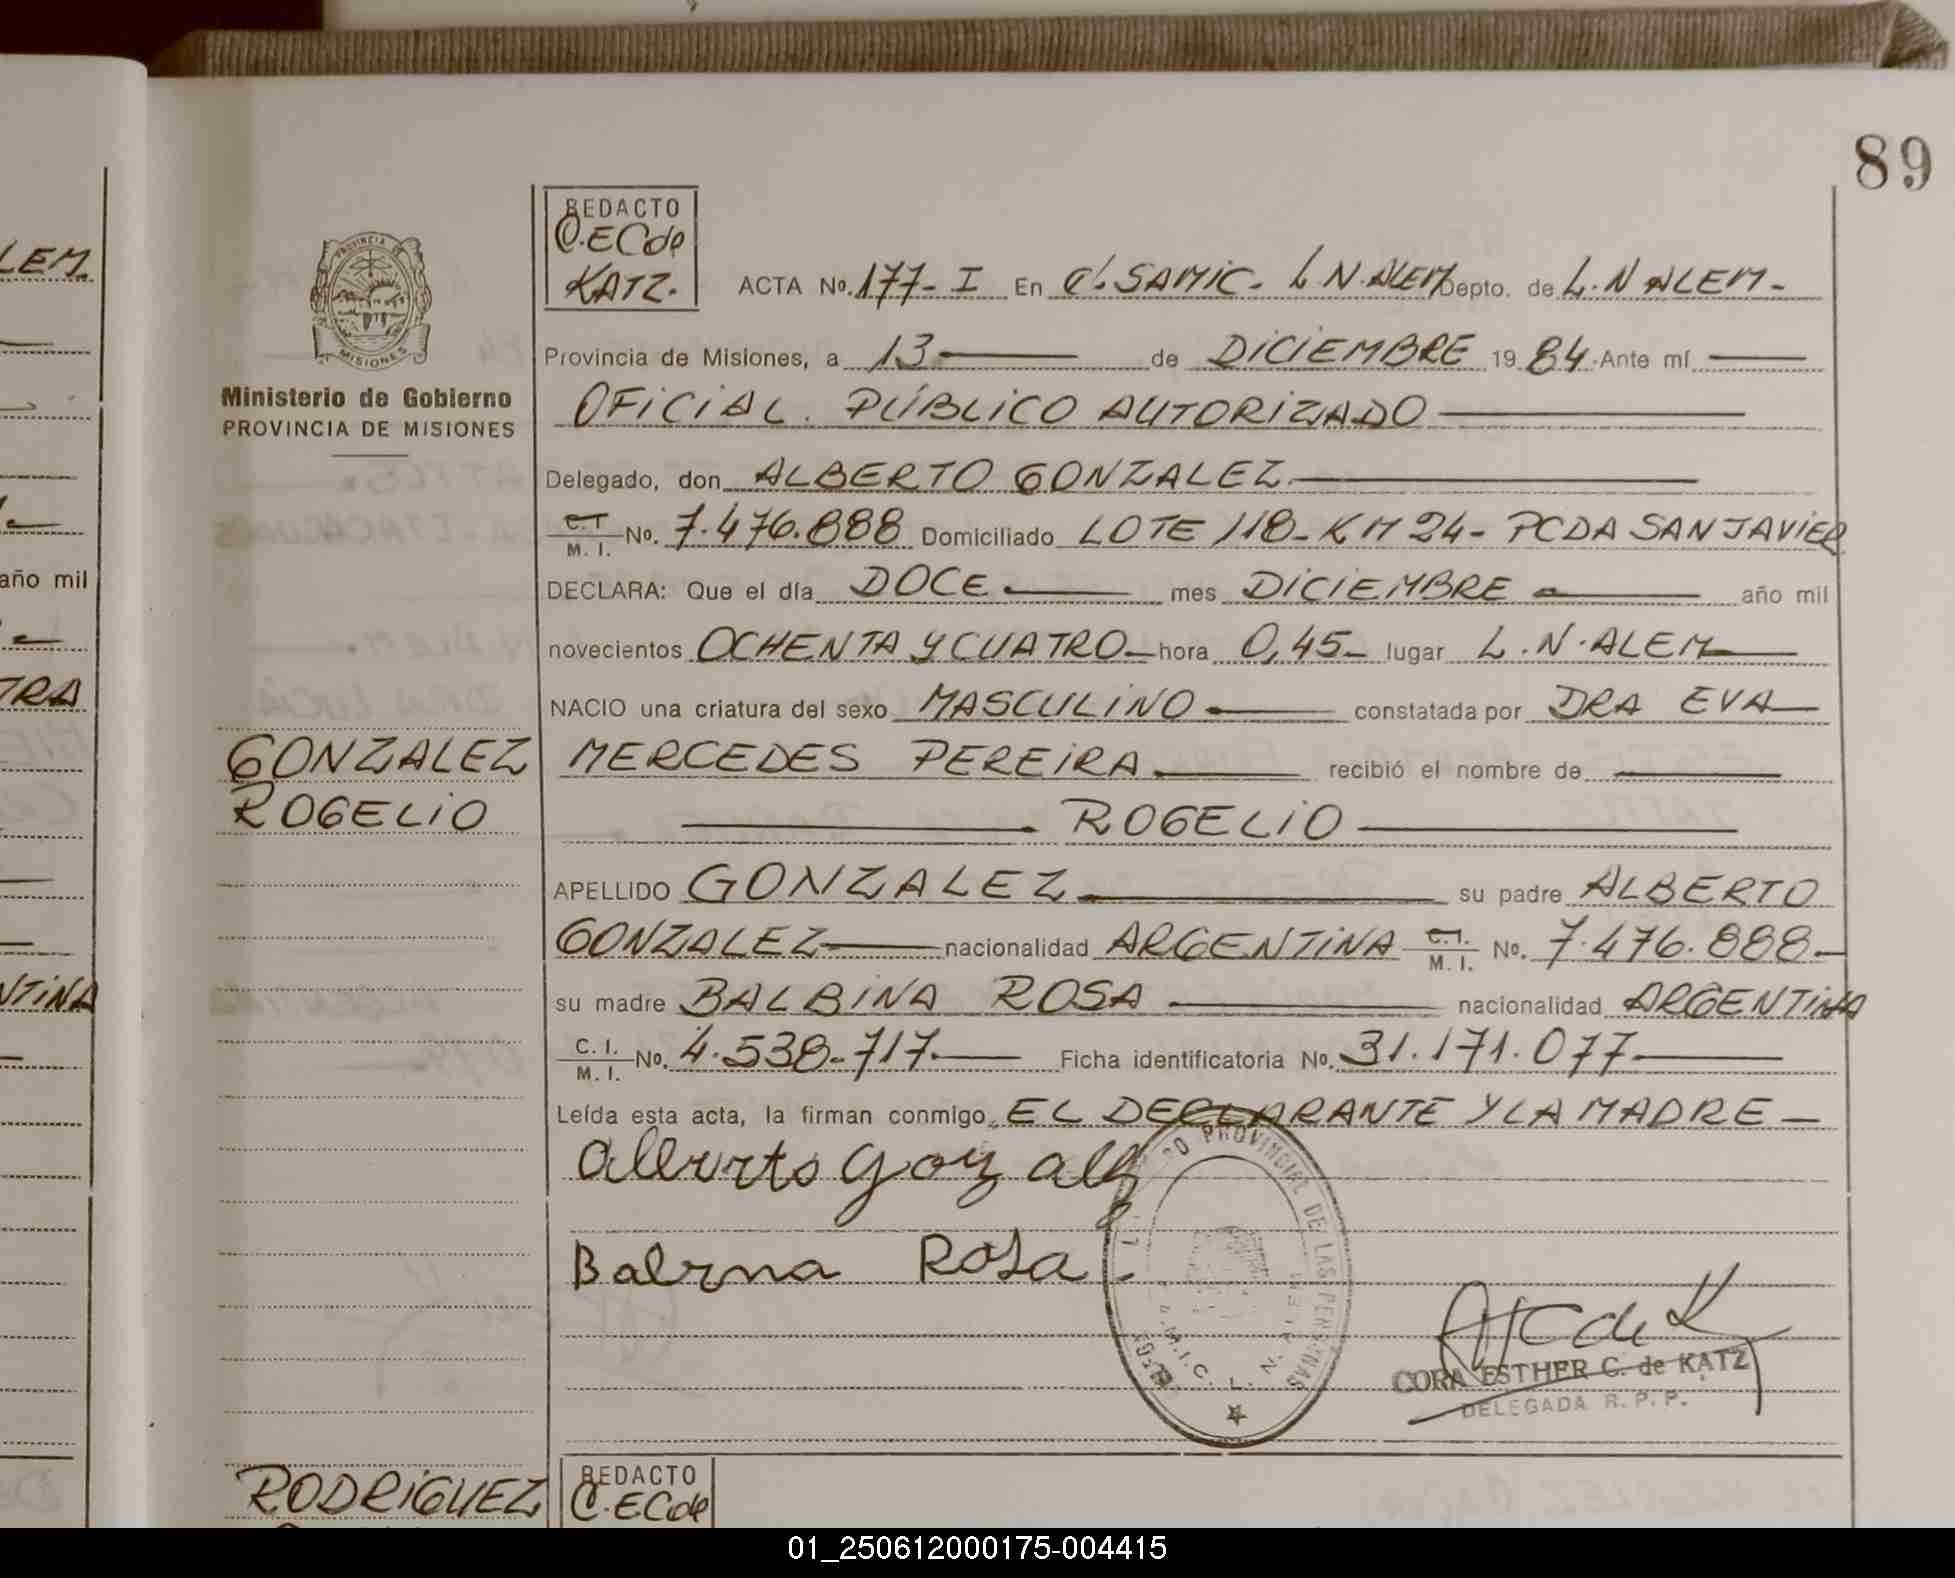 89
REDACTO
C.ECde
KATZ.
ACTA No. 177-I En C/. SAMIC- L N.ALEM Depto. de L.N ALEM-
Provincia de Misiones, a 13 de DICIEMBRE 1984. Ante mí
OFICIAL. PÚBLICO AUTORIZADO
PROVINCIA DE
MISIONES
Ministerio de Gobierno
PROVINCIA DE MISIONES
Delegado, don ALBERTO GONZALEZ
C.I. M. I. No. 7.476.888 Domiciliado LOTE 118-KM 24- PCDA SAN JAVIER
DECLARA: Que el día DOCE mes DICIEMBRE año mil
novecientos OCHENTA Y CUATRO hora 0,45 lugar L.N.ALEM
NACIO una criatura del sexo MASCULINO constatada por DRA EVA
MERCEDES PEREIRA recibió el nombre de
ROGELIO
GONZALEZ
ROGELIO
APELLIDO GONZALEZ su padre ALBERTO
GONZALEZ nacionalidad ARGENTINA C.I. M. I. No. 7.476.888-
su madre BALBINA ROSA nacionalidad ARGENTINA
C. I. M. I. No. 4.538-717 Ficha identificatoria No. 31.171.077
Leída esta acta, la firman conmigo, EL DECLARANTE Y LA MADRE
Alberto Gonzalez
Balbina Rosa
PROVINCIAL DE LAS PERSONAS
S.A.M.I.C. L. N. ALEM
CORA ESTHER C. de KATZ
DELEGADA R. P. P.
RODRIGUEZ
REDACTO
C.ECde
LEM
año mil
TRA
NTINA
01_250612000175-004415